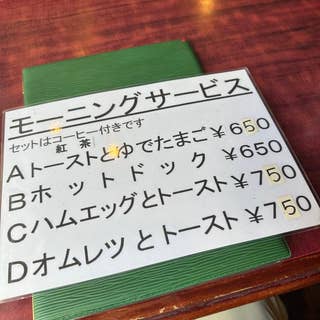 モーニングサービス
セットはコーヒー付きです
紅茶
Aトーストとゆでたまご￥650
Bホットドック￥650
Cハムエッグとトースト￥750
Dオムレツとトースト￥750